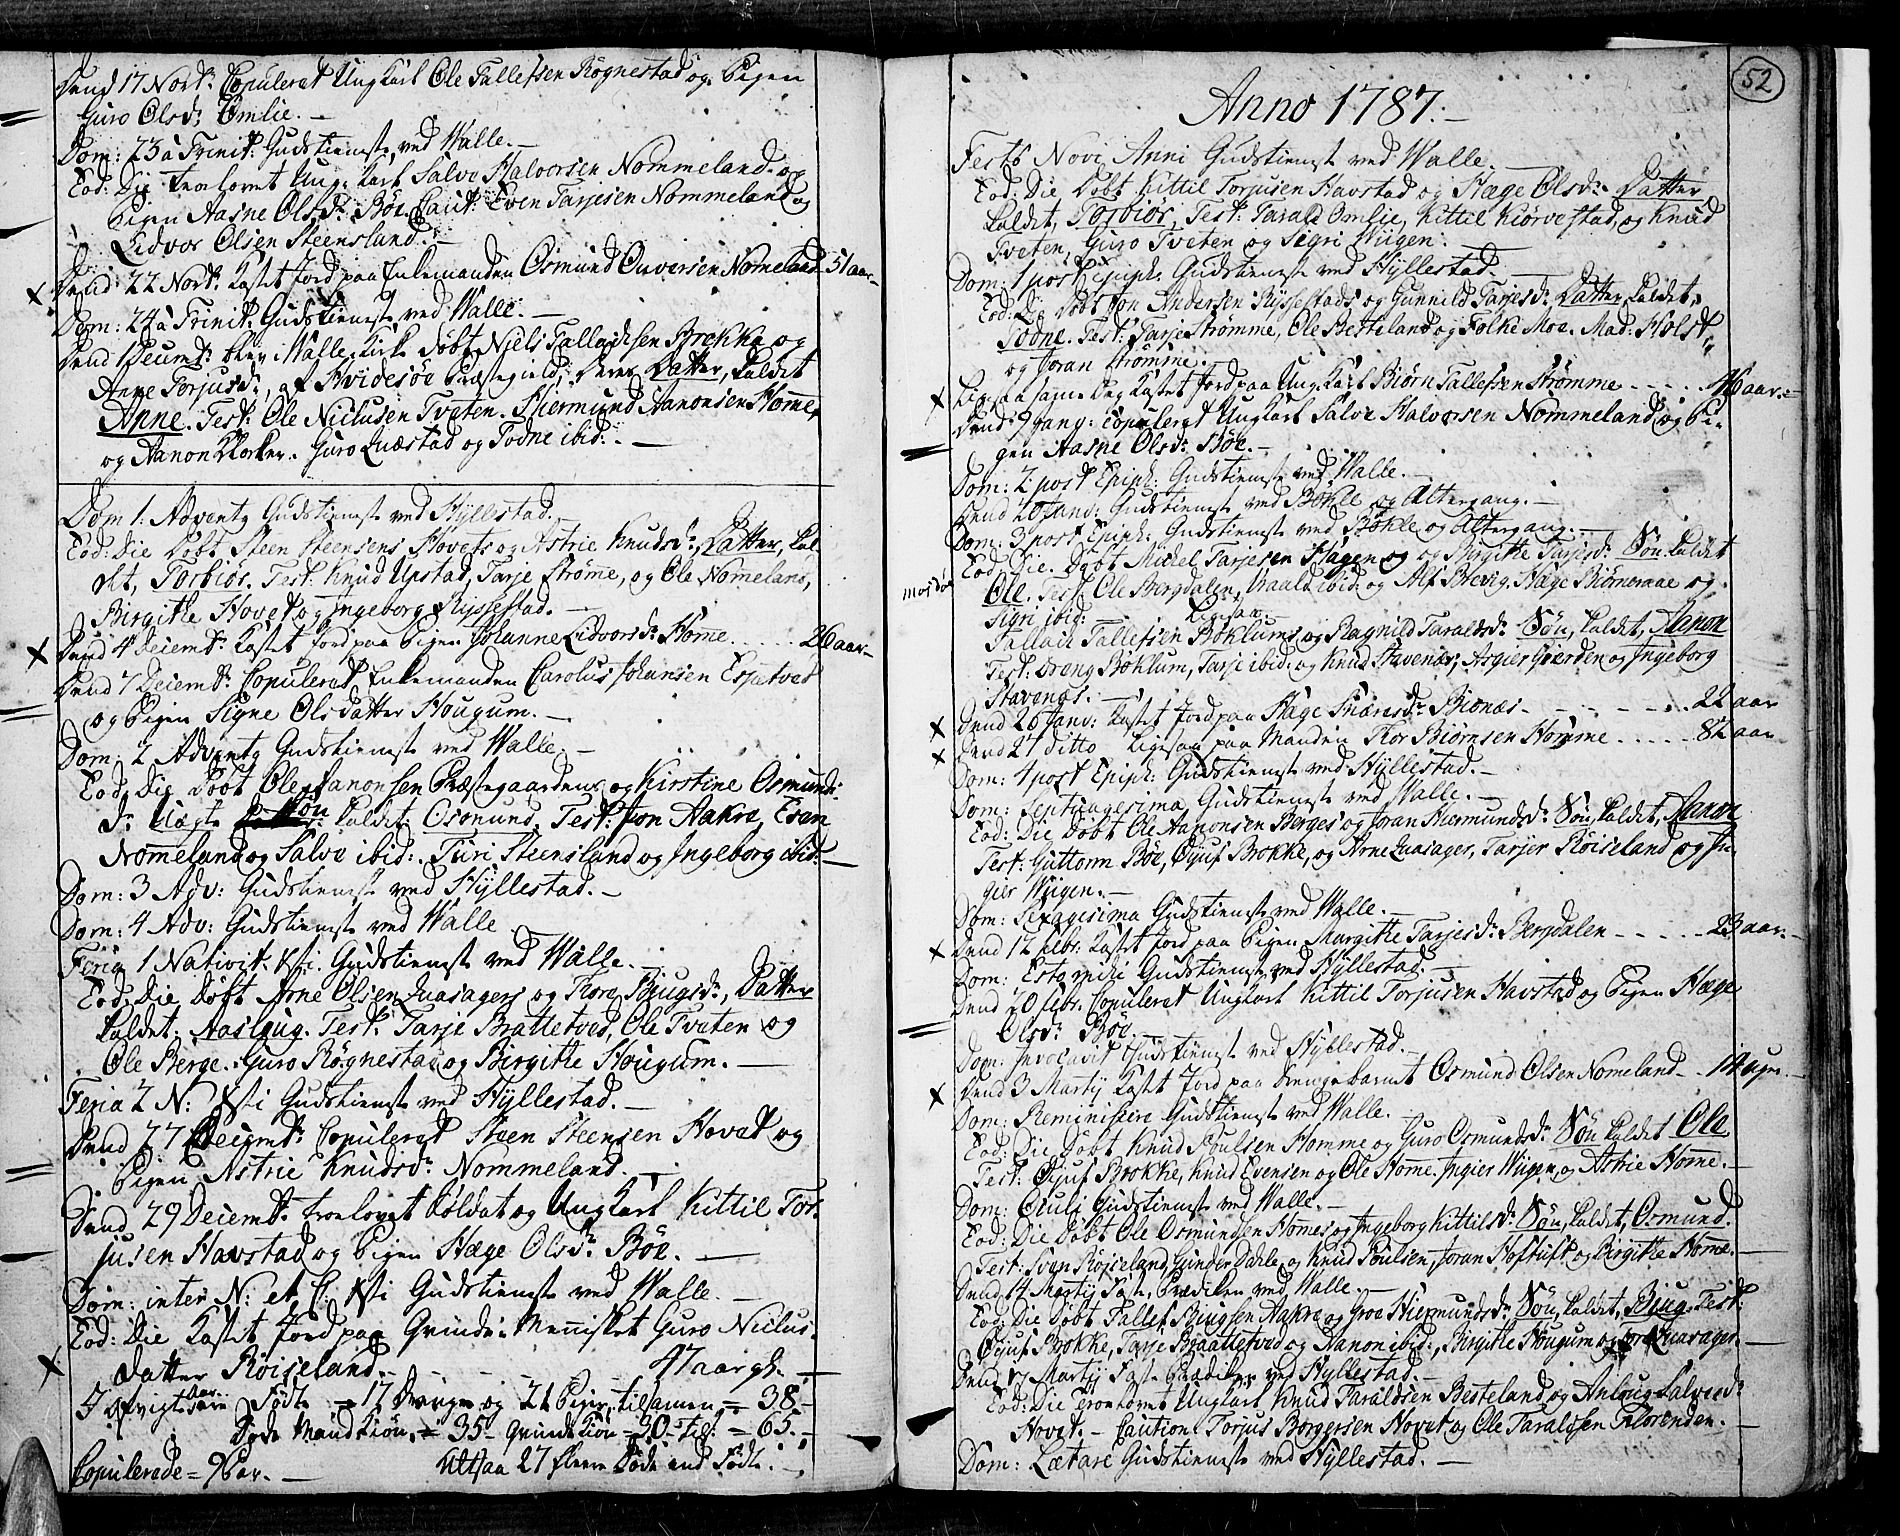 Dend 17 Novbr: Copuleret Ungkarl Ole Tallefsen Rögnestad og Pigen
Guro Olsdr: Omlie. —
Dom: 23 à Trinit: Gudstieneste ved Walle. —
Eod: Die trolovet Ung-Karl Salve Halvorsen Nommeland og
Pigen Aasne Olsdr: Böe. Caut: Even Tarjesen Nommeland og
Lidvor Olsen Steensland. —
Dend 22 Novbr: Kastet Jord paa Enkemanden Osmund Onversen Nomeland 51 aar —
Dom: 24 à Trinit: Gudstieneste ved Walle. —
Dend 1 Decembr: blev i Walle Kirke döbt Niels Talleichsen Brokke og
Anne Torjusdr:, af Hvidesöe Præstegield, deres Datter, kaldet
Anne. Test: Ole Niclusen Tveten. Hiermund Aanonsen Homme,
og Aanon Klocker. Guro Qvæstad og Todne ibid: —
Dom 1: Adventg Gudstieneste ved Hyllestad. —
Eod: Die Döbt Steen Steensens Hovets og Astrie Knudsdr: Datter, kal
det, Torbiör. Test: Knud Upstad, Tarje Strömme, og Ole Nomeland,
Birgitte Hovet og Ingeborg Rysestad. —
Dend 4 Decembr: Kastet Jord paa Pigen Johanne Lidvorsdr: Homme. 26 aar —
Dend 7 Decembr: Copuleret Enkemanden Carolus Johansen Espetvet
og Pigen Signe Olsdatter Hougum. —
Dom: 2 Adventg Gudstieneste ved Walle. —
Eod: Die Döbt Ole Aanonsen Præstegaardens og Kirstine Osmunds:
dr: Uægte Sön kaldet: Osmund. Test: Jon Aakre, Even
Nomeland og Salve ibid:. Turi Steensland og Ingeborg ibid: —
Dom: 3 Adv: Gudstieneste ved Hyllestad. —
Dom: 4 Adv: Gudstieneste ved Walle
Feria 1 Nativit. Xsti. Gudstieneste ved Walle. —
Eod: Die Döbt Arne Olsen Quasagers og Thore Biugsdr:, Datter
kaldet: Aaslaug. Test: Tarje Brattetved, Ole Tveten og
Ole Berge. Guro Rögnestad og Birgitte Hougum. —
Feria 2 N: Xsti Gudstieneste ved Hyllestad. —
Dend 27 Decembr: Copuleret Steen Steensen Hovet og
Pigen Astrie Knudsdr: Nommeland. —
Dend 29 Decembr: trolovet Soldat og Ungkarl Kittil Tor:
jusen Havstad og Pigen Hæge Olsdr: Böe. —
Dom: inter N: et C: Xsti Gudstieneste ved Walle. —
Eod: Die Kastet Jord paa Qvinde-Mennisket Guro Niclus-
datter Röiseland. 47 aar gl. —
I afvigte Aar Födte = 17 Drenge og 21 Piger, tilsamen = 38.
Döde Mandkiön = 35 - Qvindekiön = 30 - til: = 65. —
Copulerede = 9 Par. — Altsaa 27 fleere Döde end Födte. —
52
Anno 1787. —
Festo Novi Anni Gudstieneste ved Walle. —
Eod: Die Döbt Kittil Torjusen Havstad og Hæge Olsdr: Datter
kaldet, Torbiör, Test: Tarald Omlie, Kittil Kiörvestad, og Knud
Tveten, Guro Tveten og Sigri Wiigen. —
Dom: 1 post Epiph: Gudstieneste ved Hyllestad. —
Eod: Die Döbt Jon Andersen Rysestads og Gunnild Tarjesdr: Datter kaldet,
Todne. Test: Tarje Strömme, Ole Besteland og Folke Moe. Mad: Holst
og Joran Strömme. —
Ligesaa samme Dag Kastet Jord paa Ung Karl Biörn Tallefsen Strömme 46 aar. —
Dend 9 Janv: Copuleret Ungkarl Salve Halvorsen Nommeland og Pi-
gen Aasne Olsdr: Böe. —
Dom: 2 post Epiph: Gudstieneste ved Walle. —
Dend 20 Janv: Gudstieneste ved Bökle og Altergang. —
Dom: 3 post Epiph: Gudstieneste ved Bökle og Altergang. —
Eod: Die. Döbt Michel Tarjesen Hagen og og Birgitte Tarjesdr: Sön kaldet
Ole. Test: Ole Bergdalen, ibid: og Alf Brevig. Hæge Biörnaraae og
Sigri ibid: Ligesaa
Tallach Tallefsen Böklums og Ragnild Taraldsdr: Sön, kaldet, Aanon
Test: Dreng Böklum, Tarje ibid: og Knud Stavenæs, Asgier Gierden og Ingeborg
Stavenæs. —
Dend 26 Janv: Kastet Jord paa Hæge Snaresdr: Biones 22 aar
Dend 27 ditto Ligesaa paa Manden Thor Biörnsen Homme 82 aar
Dom: 4 post Epiph: Gudstieneste ved Hyllestad. —
Dom: Septuagesima Gudstieneste ved Walle. —
Eod: Die Döbt Ole Aanonsen Berges og Joran Hiermundsdr: Sön, kaldet, Aanon
Test: Guttorm Böe, Öjuf Brokke, og Arne Quasager, Tarjer Röiseland og In
gier Wiigen. —
Dom: Sexagesima Gudstieneste ved Walle. —
Dend 12 Febr: Kastet Jord paa Pigen Margitte Tarjesdr: Bergdalen 23 aar. —
Dom: Estomihi Gudstieneste ved Hyllestad. —
Dend 20 Febr: Copuleret Ungkarl Kittil Torjusen Havstad og Pigen Hæge
Olsdr: Böe. —
Dom: Invocavit Gudstieneste ved Hyllestad. —
Dend 3 Martij Kastet Jord paa Drengebarnet Osmund Olsen Nomeland 14 uger. —
Dom: Reminiscere Gudstieneste ved Walle. —
Eod: Die Döbt Knud Poulsen Homme og Guro Osmundsdr: Sön kaldet Ole
Test: Öjuf Brokke, Knud Evensen og Ole Home. Ingier Wiigen, og Astrie Home. —
Dom: Oculi Gudstieneste ved Walle. —
Eod: Die Döbt Ole Osmundsen Homes og Ingeborg Kittilsdr: Sön, kaldet, Osmund.
Test: Sven Röjseland, Gunder Dahle og Knud Poulsen, Joran Hoftuft og Birgitte Home. —
Dend 14 Martij Faste-Prædiken ved Walle. —
Eod: Die Döbt Tallef Biugsen Aakre og Groe Hiermundsdr: Sön, kaldet, Biug. Test:
Öjuf Brokke, Tarje Braattetved og Aanon ibid:, Birgitte Hougum og Quasager. —
Dend 17 Martij Faste-Prædiken ved Hyllestad. —
Eod: Die trolovet Ungkarl Knud Taraldsen Besteland og Anlaug Salvesdr
Hovet. — Caution: Torjus Borgersen Hovet og Ole Taraldsen Florenden. —
Dom: Lætare Gudstieneste ved Hyllestad. —